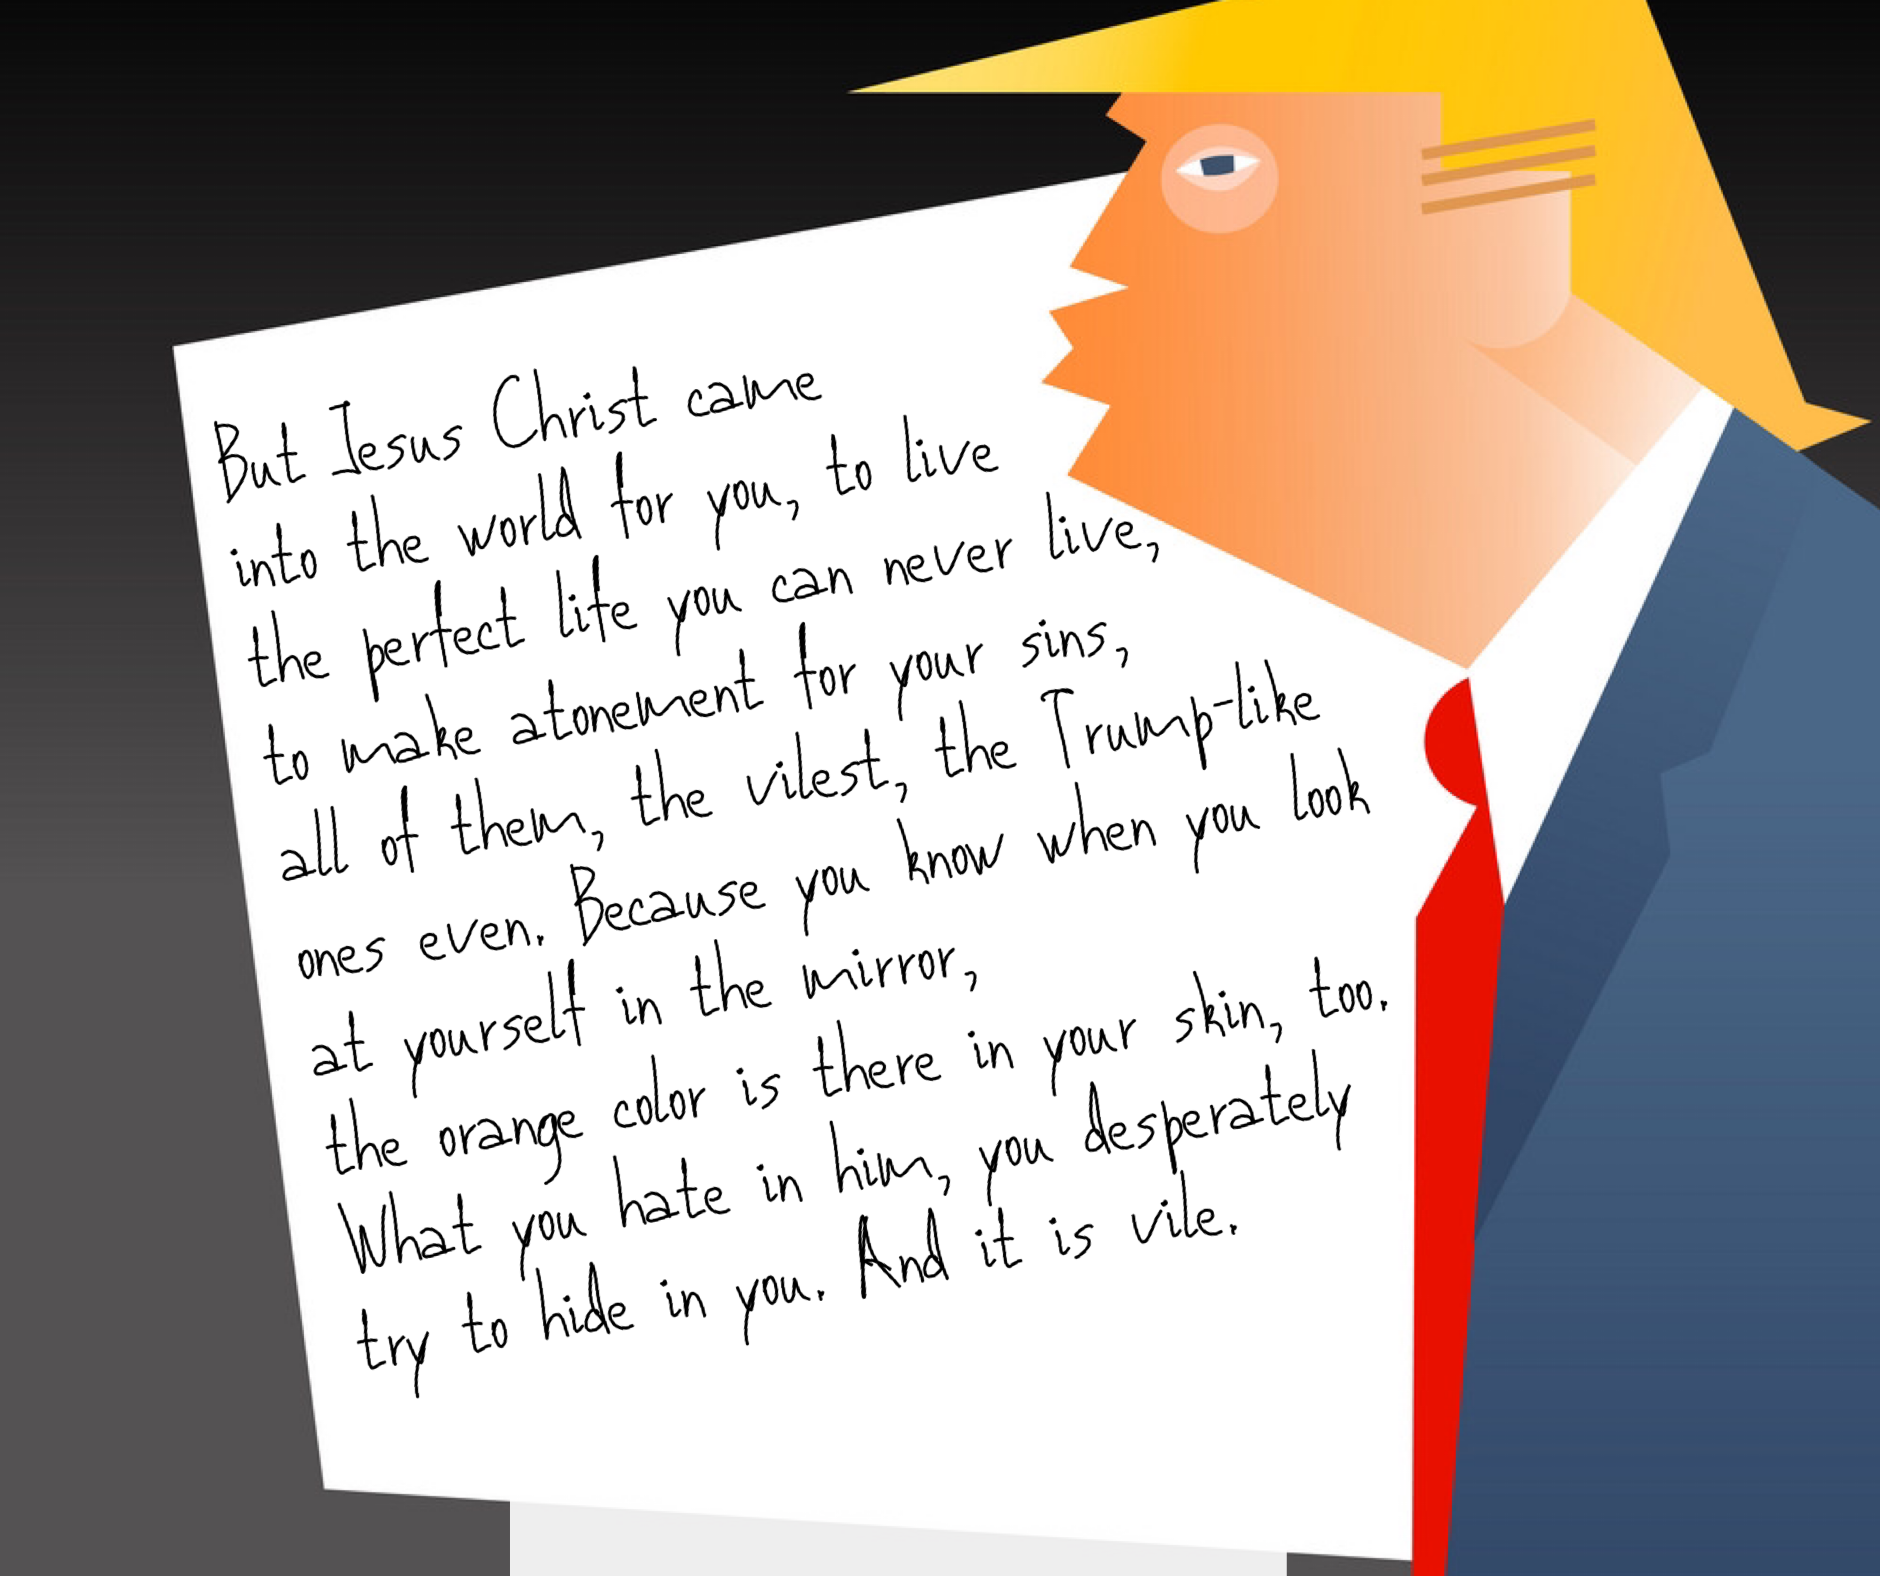 But Jesus Christ came
into the world for you, to live
the perfect life you can never live,
to make atonement for your sins,
all of them, the vilest, the Trump-like
ones even. Because you know when you look
at yourself in the mirror,
the orange color is there in your skin, too.
What you hate in him, you desperately
try to hide in you. And it is vile.